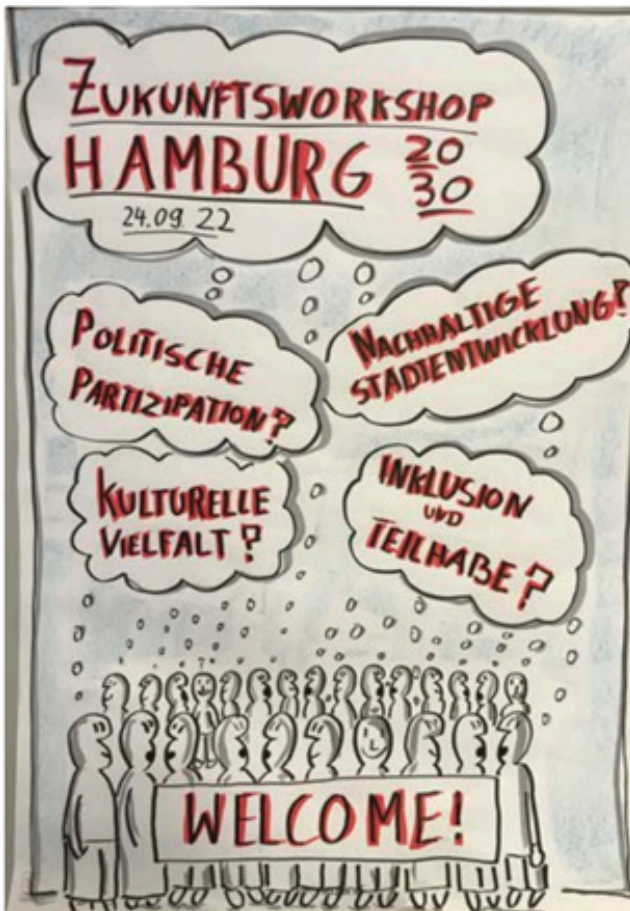 ZUKUNFTSWORKSHOP
HAMBURG 20
30
24.09.22
POLITISCHE
PARTIZIPATION?
NACHHALTIGE
STADTENTWICKLUNG?
KULTURELLE
VIELFALT?
INKLUSION
UND
TEILHABE?
WELCOME!